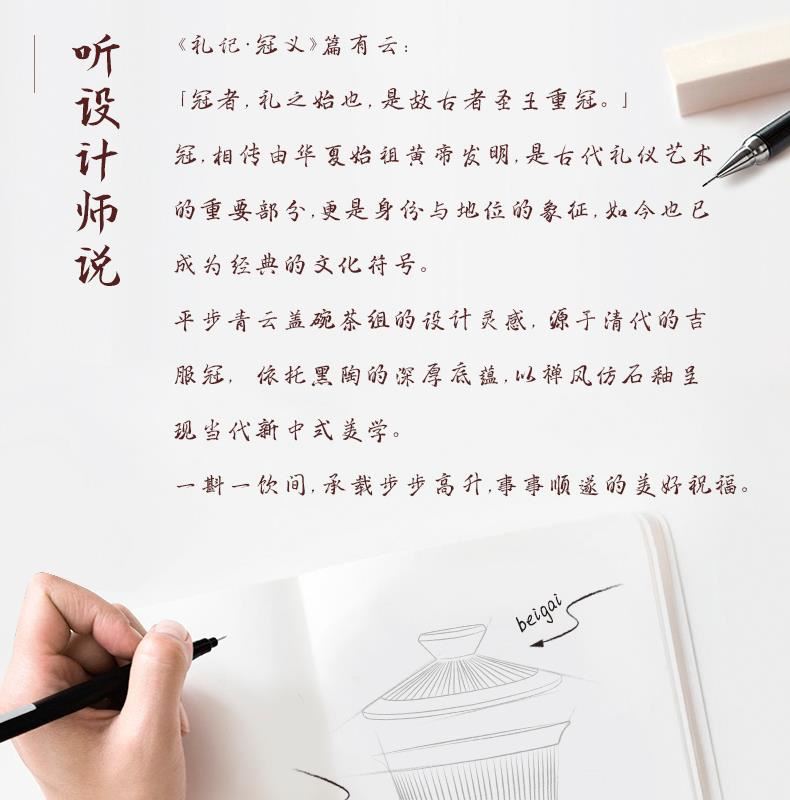 听设计师说
《礼记·冠义》篇有云：
「冠者，礼之始也，是故古者圣王重冠。」
冠，相传由华夏始祖黄帝发明，是古代礼仪艺术
的重要部分，更是身份与地位的象征，如今也已
成为经典的文化符号。
平步青云盖碗茶组的设计灵感，源于清代的吉
服冠， 依托黑陶的深厚底蕴，以禅风仿石釉呈
现当代新中式美学。
一斟一饮间，承载步步高升，事事顺遂的美好祝福。
beigai